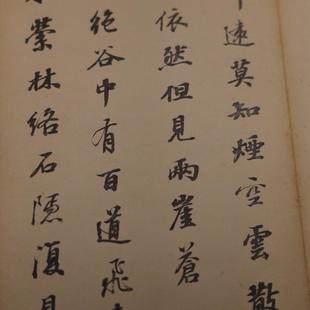 遠莫知煙空雲散
依然但見兩崖蒼
絕谷中有百道飛
縈林絡石隱復見